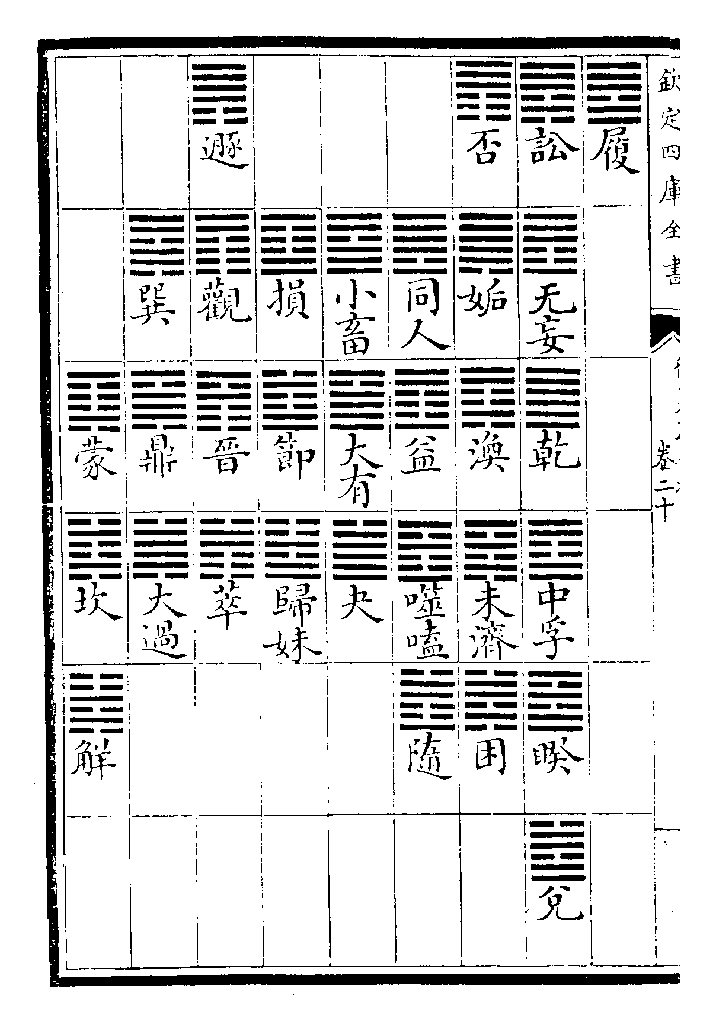 欽定四庫全書
卷二十
履
訟
无妄
乾
中孚
睽
兌
否
姤
渙
未濟
困
同人
益
噬嗑
隨
小畜
大有
夬
損
節
歸妹
遯
觀
晉
萃
巽
鼎
大過
蒙
坎
解